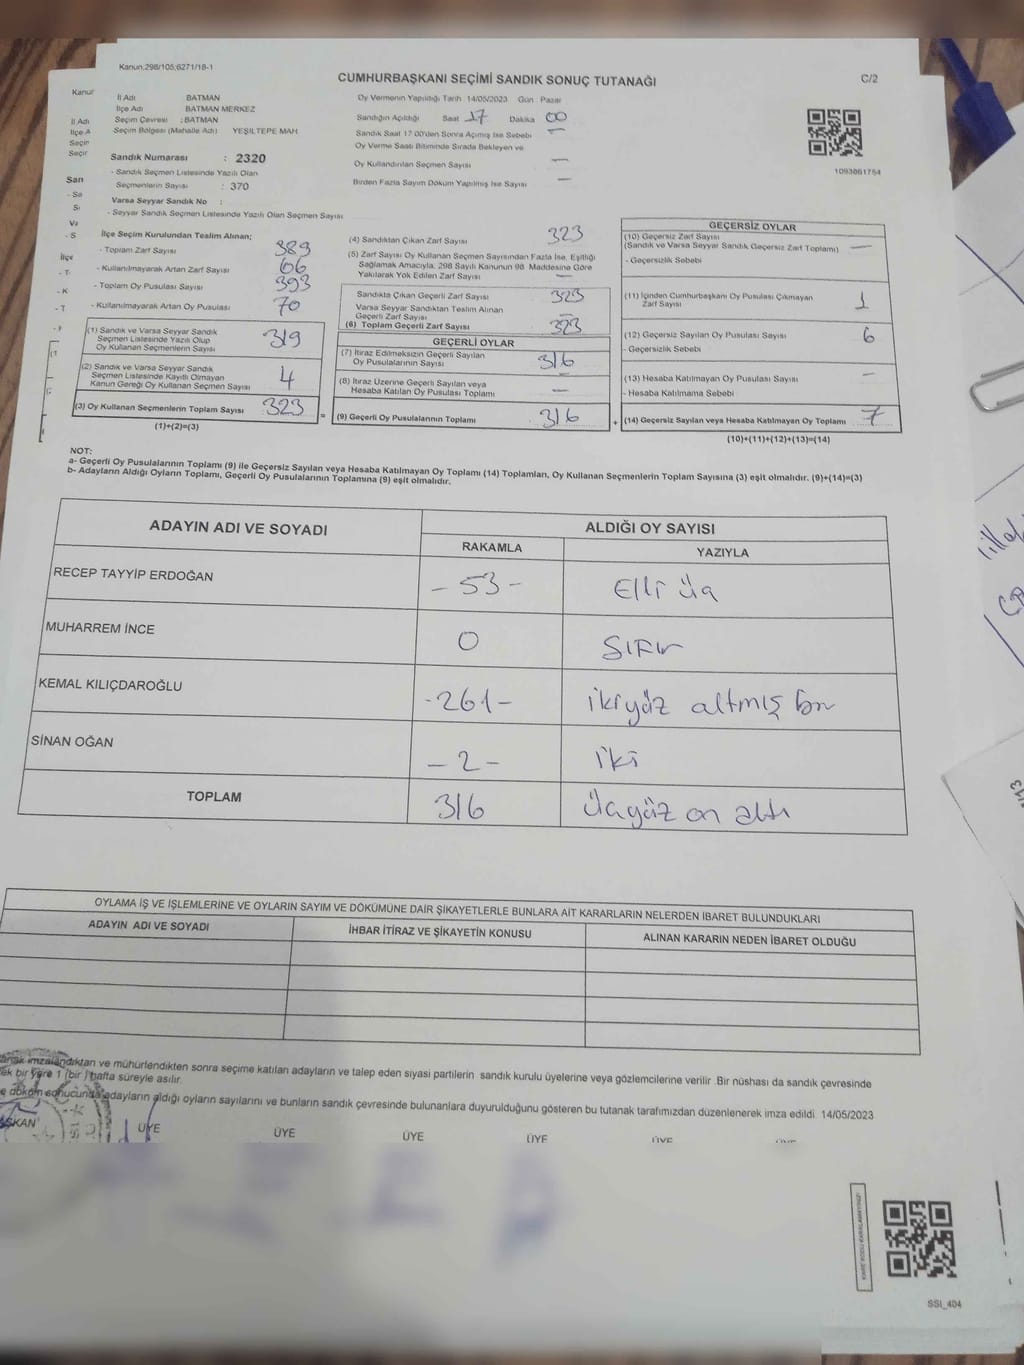 Kanun;298/105;6271/18-1
CUMHURBAŞKANI SEÇİMİ SANDIK SONUÇ TUTANAĞI
C/2
Kanun
İl Adı BATMAN
İlçe Adı BATMAN MERKEZ
Seçim Çevresi : BATMAN
Seçim Bölgesi (Mahalle Adı) YEŞİLTEPE MAH
Sandık Numarası : 2320
- Sandık Seçmen Listesinde Yazılı Olan
Seçmenlerin Sayısı : 370
Varsa Seyyar Sandık No :
- Seyyar Sandık Seçmen Listesinde Yazılı Olan Seçmen Sayısı
Oy Vermenin Yapıldığı Tarih 14/05/2023 Gün Pazar
Sandığın Açıldığı Saat 17 Dakika 00
Sandık Saat 17:00'den Sonra Açılmış İse Sebebi —
Oy Verme Saati Bitiminde Sırada Bekleyen ve
Oy Kullandırılan Seçmen Sayısı —
Birden Fazla Sayım Döküm Yapılmış İse Sayısı —
1093861754
İl Adı
İlçe A
Seçim
Seçir
San
- Sa
Va
- S
İlçe
- T
- K
- T
İlçe Seçim Kurulundan Teslim Alınan;
- Toplam Zarf Sayısı 389
- Kullanılmayarak Artan Zarf Sayısı 66
- Toplam Oy Pusulası Sayısı 393
- Kullanılmayarak Artan Oy Pusulası 70
(1) Sandık ve Varsa Seyyar Sandık
Seçmen Listesinde Yazılı Olup
Oy Kullanan Seçmenlerin Sayısı 319
(2) Sandık ve Varsa Seyyar Sandık
Seçmen Listesinde Kayıtlı Olmayan
Kanun Gereği Oy Kullanan Seçmen Sayısı 4
(3) Oy Kullanan Seçmenlerin Toplam Sayısı 323
(1)+(2)=(3)
=
(4) Sandıktan Çıkan Zarf Sayısı 323
(5) Zarf Sayısı Oy Kullanan Seçmen Sayısından Fazla İse, Eşitliği
Sağlamak Amacıyla, 298 Sayılı Kanunun 98. Maddesine Göre
Yakılarak Yok Edilen Zarf Sayısı —
Sandıkta Çıkan Geçerli Zarf Sayısı 323
Varsa Seyyar Sandıktan Teslim Alınan
Geçerli Zarf Sayısı —
(6) Toplam Geçerli Zarf Sayısı 323
GEÇERLİ OYLAR
(7) İtiraz Edilmeksizin Geçerli Sayılan
Oy Pusulalarının Sayısı 316
(8) İtiraz Üzerine Geçerli Sayılan veya
Hesaba Katılan Oy Pusulası Toplamı —
(9) Geçerli Oy Pusulalarının Toplamı 316
+
GEÇERSİZ OYLAR
(10) Geçersiz Zarf Sayısı
(Sandık ve Varsa Seyyar Sandık Geçersiz Zarf Toplamı) —
- Geçersizlik Sebebi
(11) İçinden Cumhurbaşkanı Oy Pusulası Çıkmayan
Zarf Sayısı 1
(12) Geçersiz Sayılan Oy Pusulası Sayısı 6
- Geçersizlik Sebebi
(13) Hesaba Katılmayan Oy Pusulası Sayısı —
- Hesaba Katılmama Sebebi
(14) Geçersiz Sayılan veya Hesaba Katılmayan Oy Toplamı 7
(10)+(11)+(12)+(13)=(14)
NOT:
a- Geçerli Oy Pusulalarının Toplamı (9) ile Geçersiz Sayılan veya Hesaba Katılmayan Oy Toplamı (14) Toplamları, Oy Kullanan Seçmenlerin Toplam Sayısına (3) eşit olmalıdır. (9)+(14)=(3)
b- Adayların Aldığı Oyların Toplamı, Geçerli Oy Pusulalarının Toplamına (9) eşit olmalıdır.
ADAYIN ADI VE SOYADI ALDIĞI OY SAYISI
RAKAMLA YAZIYLA
RECEP TAYYİP ERDOĞAN - 53 - Elli üç
MUHARREM İNCE 0 SIFIr
KEMAL KILIÇDAROĞLU - 261 - ikiyüz altmış bir
SİNAN OĞAN - 2 - iki
TOPLAM 316 üçyüz on altı
OYLAMA İŞ VE İŞLEMLERİNE VE OYLARIN SAYIM VE DÖKÜMÜNE DAİR ŞİKAYETLERLE BUNLARA AİT KARARLARIN NELERDEN İBARET BULUNDUKLARI
ADAYIN ADI VE SOYADI İHBAR İTİRAZ VE ŞİKAYETİN KONUSU ALINAN KARARIN NEDEN İBARET OLDUĞU
anak imzalandıktan ve mühürlendikten sonra seçime katılan adayların ve talep eden siyasi partilerin sandık kurulu üyelerine veya gözlemcilerine verilir. Bir nüshası da sandık çevresinde
ek bir yere 1 (bir) hafta süreyle asılır.
e döküm sonucunda adayların aldığı oyların sayılarını ve bunların sandık çevresinde bulunanlara duyurulduğunu gösteren bu tutanak tarafımızdan düzenlenerek imza edildi. 14/05/2023
ŞKAN ÜYE ÜYE ÜYE ÜYE ÜYE
SSI_404